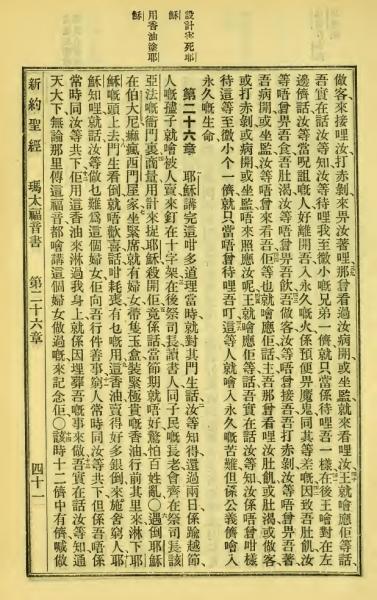 設計害死耶
穌
用香油塗耶
穌
做客來接哩汝打赤剝來畀汝著哩那曾看過汝病開或坐監就來看哩汝王就噲應佢等話
吾實在話汝等知汝等待哩我至微小嘅兄弟一儕就只當係待哩吾一樣在後王噲對在左
邊儕話汝等當呪詛嘅人好離開吾入永久嘅火係預便畀魔鬼同其等差嘅因致吾肚飢汝
等唔曾畀吾食吾肚渴汝等唔曾畀吾飲吾做客汝等唔曾接吾吾打赤剝汝等唔曾畀吾著
吾病開或坐監汝等唔曾來看吾佢等也就噲應佢話主吾那曾看哩汝肚飢或肚渴或做客
或打赤剝或病開或坐監唔來照應汝呢王就噲應佢等話吾實在話汝等知汝係唔曾咁樣
待這等至微小个一儕就只當唔曾待哩吾叮這等人就噲入永久嘅苦難但係公義儕噲入
永久嘅生命
第二十六章 耶穌講完這咁多道理當時就對其門生話汝等知得還過兩日係踰越節
人嘅孻子就噲被人賣來釘在十字架在後祭司長讀書人同子民嘅長老會齊在祭司長該
亞法嘅衙門裏商量用計來捉耶穌殺開佢竟係話當節期就唔好驚怕百姓亂〇遇倒耶穌
在伯大尼痲瘋西門屋家坐緊席就有婦女帶隻玉盒裝緊極貴嘅香油行前其里來淋下耶
穌嘅頭上去門生看倒就唔歡喜話咁耗喪有乜嘅用這香油賣得好多銀倒來施舍窮人耶
穌知哩就話汝等做乜難爲這個婦女佢向吾行件善事窮人常時同汝等共下但係吾唔係
常時同汝等共下佢用這香油來淋過我身上就係因埋葬吾嘅事來做吾實在話汝等知通
天大下無論那里傳這福音都噲講這個婦女做過嘅來記念佢〇該時十二儕中有儕喊做
新約聖經 瑪太福音書 第二十六章 四十一